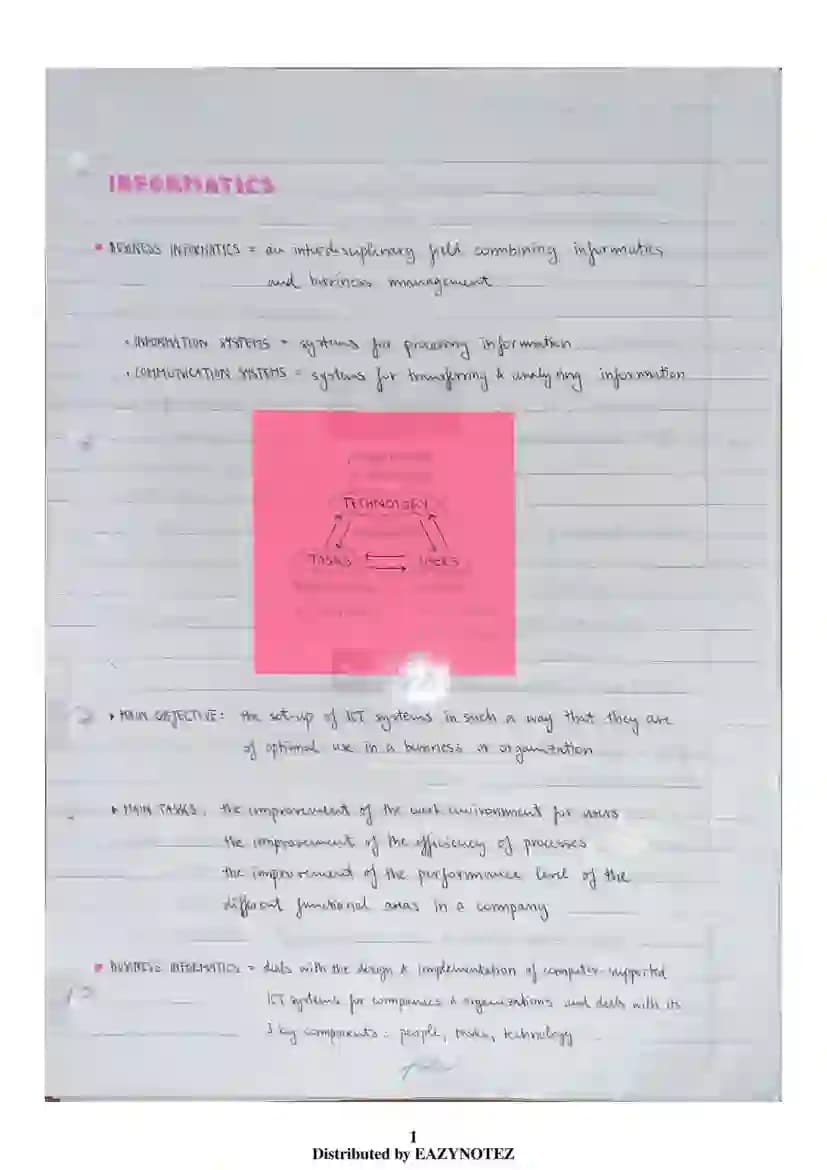 INFORMATICS
• BUSINESS INFORMATICS = an interdesuplinary field combining informatics
and business management
• INFORMATION SYSTEMS = systems for processing information
• COMMUNICATION SYSTEMS = systems for transferring & analyzing information
TECHNOLOGY
TASKS USERS
▸ MAIN OBJECTIVE: the set-up of ICT systems in such a way that they are
of optimal use in a business or organization
▸ MAIN TASKS: the improvement of the work environment for users
the improvement of the efficiency of processes
the improvement of the performance level of the
different functional areas in a company
• BUSINESS INFORMATICS = deals with the design & implementation of computer-supported
ICT systems for companies & organizations and deals with its
3 key components: people, tasks, technology
1
Distributed by EAZYNOTEZ